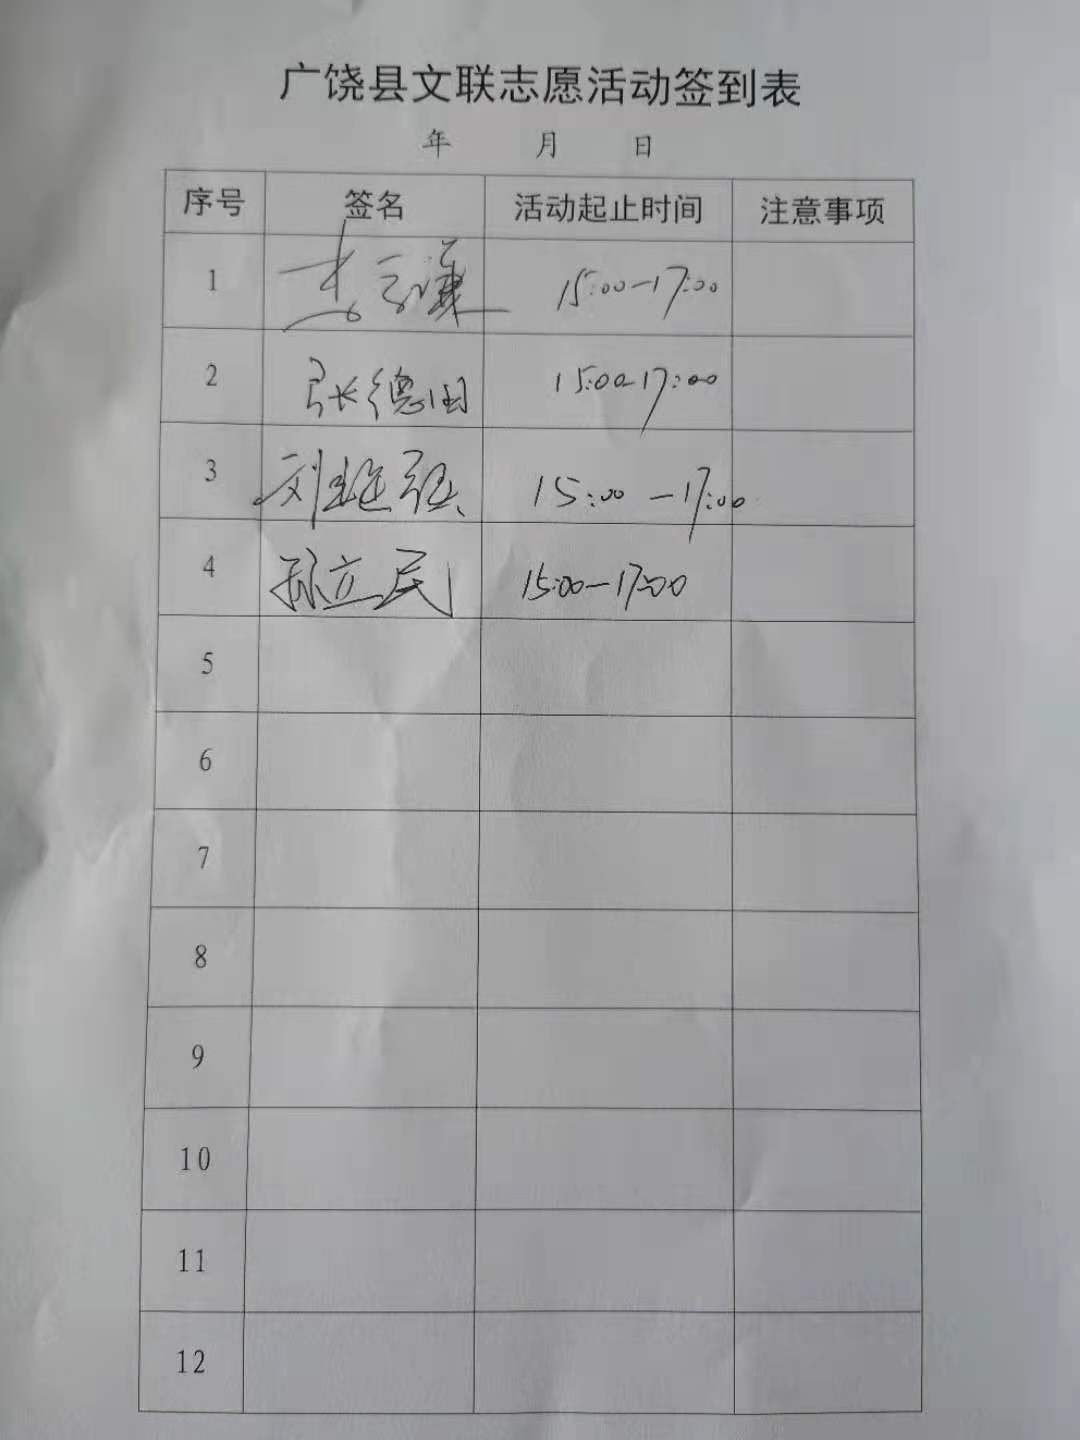 广饶县文联志愿活动签到表
年 月 日
序号 签名 活动起止时间 注意事项
1 15:00-17:00
2 张德田 15:00-17:00
3 刘 15:00-17:00
4 孙立民 15:00-17:00
5
6
7
8
9
10
11
12